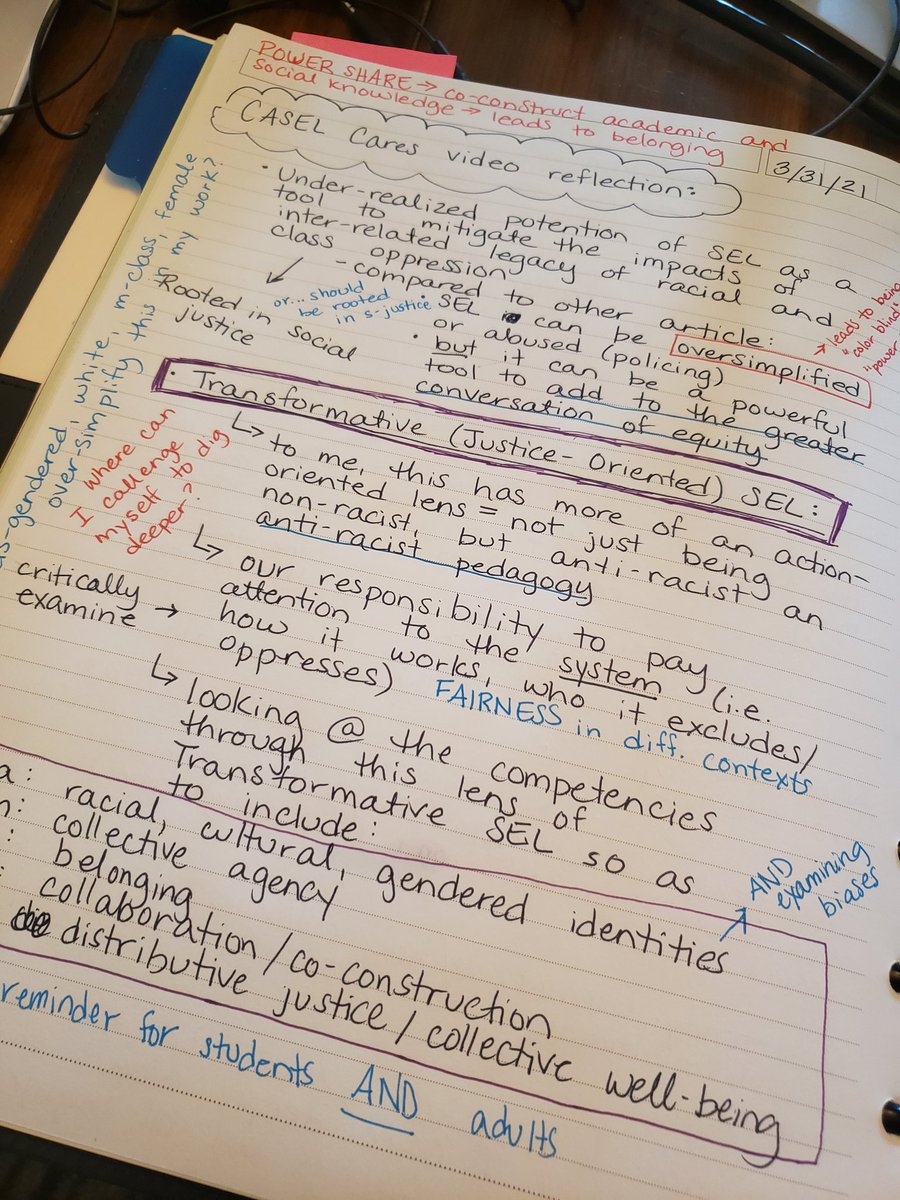 POWER SHARE → co-construct academic and
social knowledge → leads to belonging
3/31/21
CASEL Cares video reflection:
• Under-realized potention of SEL as a
tool to mitigate the impacts of
inter-related legacy of racial and
class oppression
- compared to other article:
• SEL can be oversimplified
or abused (policing)
• but it can be a powerful
tool to add to the greater
conversation of equity
→ leads to being
"color blind"
"power
Rooted in social
justice
or... should
be rooted
in s-justice
-gendered, white, m-class, female
over-simplify this in my work?
• Transformative (Justice-Oriented) SEL:
↳ to me, this has more of an action-
oriented lens = not just being
non-racist, but anti-racist an
anti-racist pedagogy
where can
I callenge
myself to dig
deeper?
↳ our responsibility to pay
attention to the system (i.e.
how it works, who it excludes/
oppresses)
critically
examine →
FAIRNESS in diff. contexts
↳ looking @ the competencies
through this lens of
Transformative SEL so as
to include:
a: racial, cultural, gendered identities
: collective agency
: belonging
: collaboration/co-construction
distributive justice/collective well-being
AND
examining
biases
reminder for students AND adults